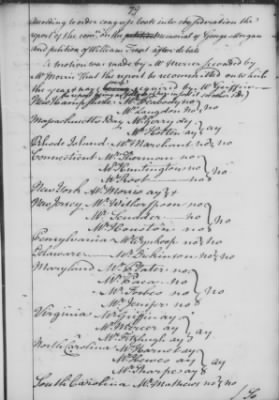 79
According to order congress took into consideration the
report of the comee on the memorial of George Morgan
and petition of William Trent after debate
A motion was made by Mr Mercer seconded by
Mr Morris That the report be recommitted on which
the yeas & nays being required by Mr Griffin
New hampshire Mr Peabody no } no
Mr Langdon no
Massachusetts Bay Mr Gerry ay }
Mr Holten ay } ay
Rhode Island Mr Marchant no } no
Connecticut Mr Sherman no }
Mr Huntington no } no
Mr Root no
New York Mr Morris ay }
New Jersey Mr Witherspoon no }
Mr Scudder no } no
Mr Houston no
Pennsylvania Mr Wynkoop no } no
Delaware Mr Dickinson no } no
Maryland Mr Plater no }
Mr Paca no
Mr Forbes no } no
Mr Jenifer no
Virginia Mr Griffin ay }
Mr Mercer ay } ay
Mr Fitzhugh ay
North Carolina Mr Harnet ay }
Mr Hewes ay } ay
Mr Sharpe ay
South Carolina Mr Mathews no } no
/ So